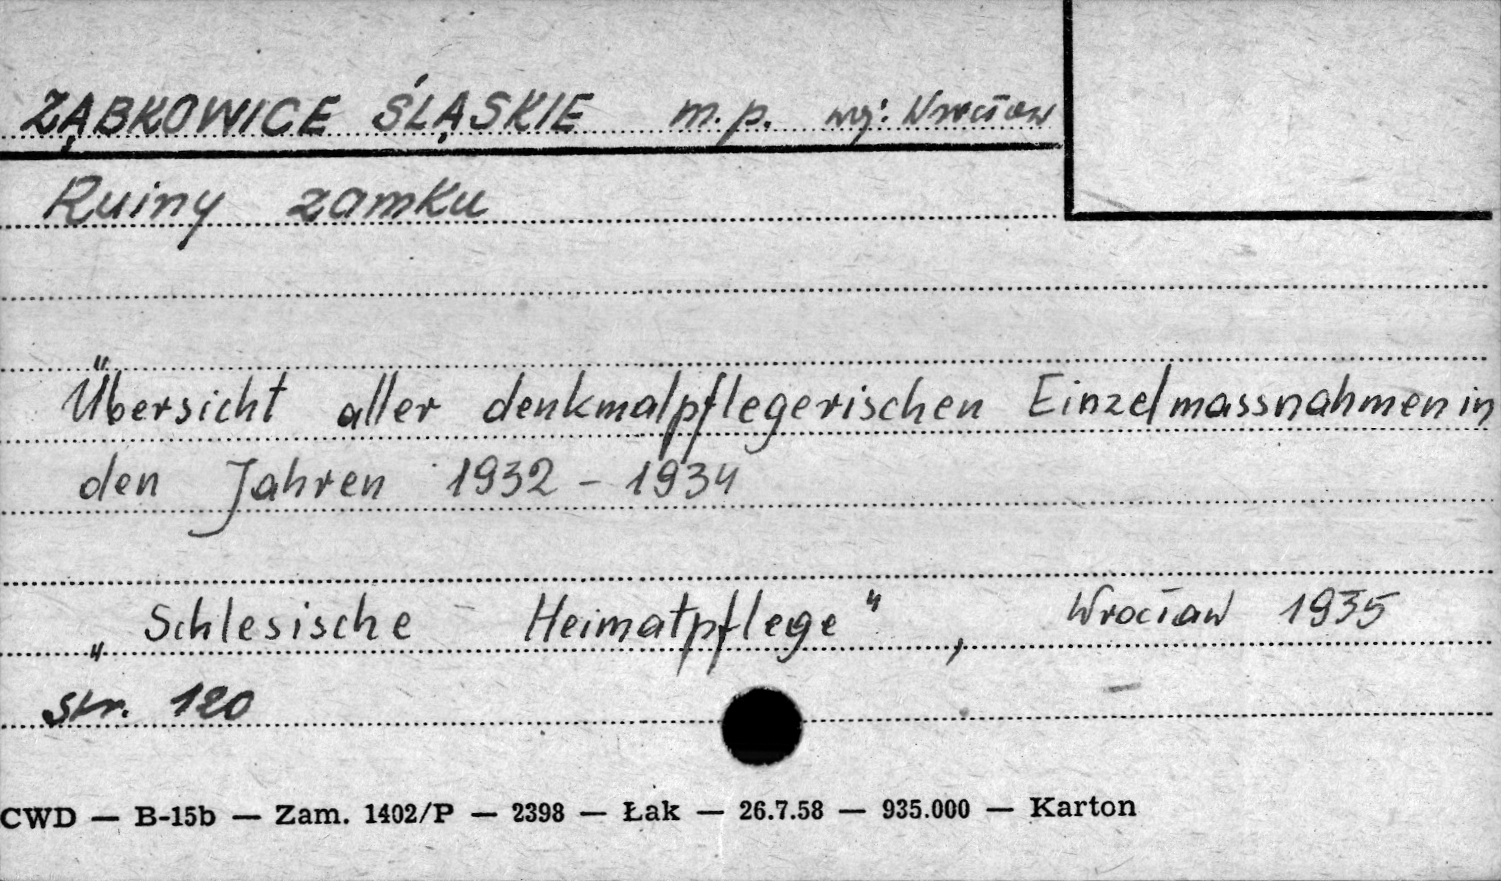 ZĄBKOWICE ŚLĄSKIE m.p. woj: Wrocław
Ruiny zamku
Übersicht aller denkmalpflegerischen Einzelmassnahmen in
den Jahren 1932 - 1934
„Schlesische Heimatpflege", Wrocław 1935
str. 120
CWD — B-15b — Zam. 1402/P — 2398 — Łak — 26.7.58 — 935.000 — Karton